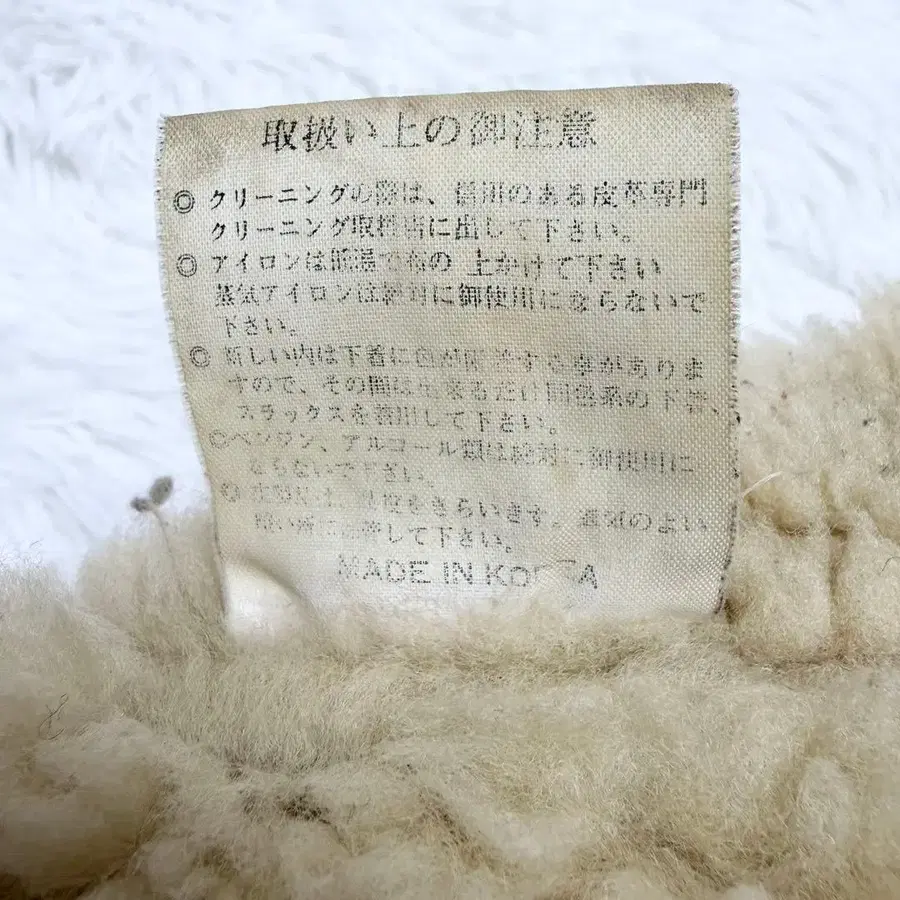 取扱い上の御注意
◎ クリーニングの際は、信用のある皮革専門
クリーニング取扱店に出して下さい。
◎ アイロンは低温で布の 上かけて下さい
蒸気アイロンは絶対に御使用にならないで
下さい。
◎ 新しい内は下着に色が附着する事がありま
すので、その間は出来るだけ同色系の下着、
スラックスを着用して下さい。
◎ベンジン、アルコール類は絶対に御使用に
ならないで下さい。
◎ 湿度をきらいます。通気のよい
所に して下さい。
MADE IN KOREA